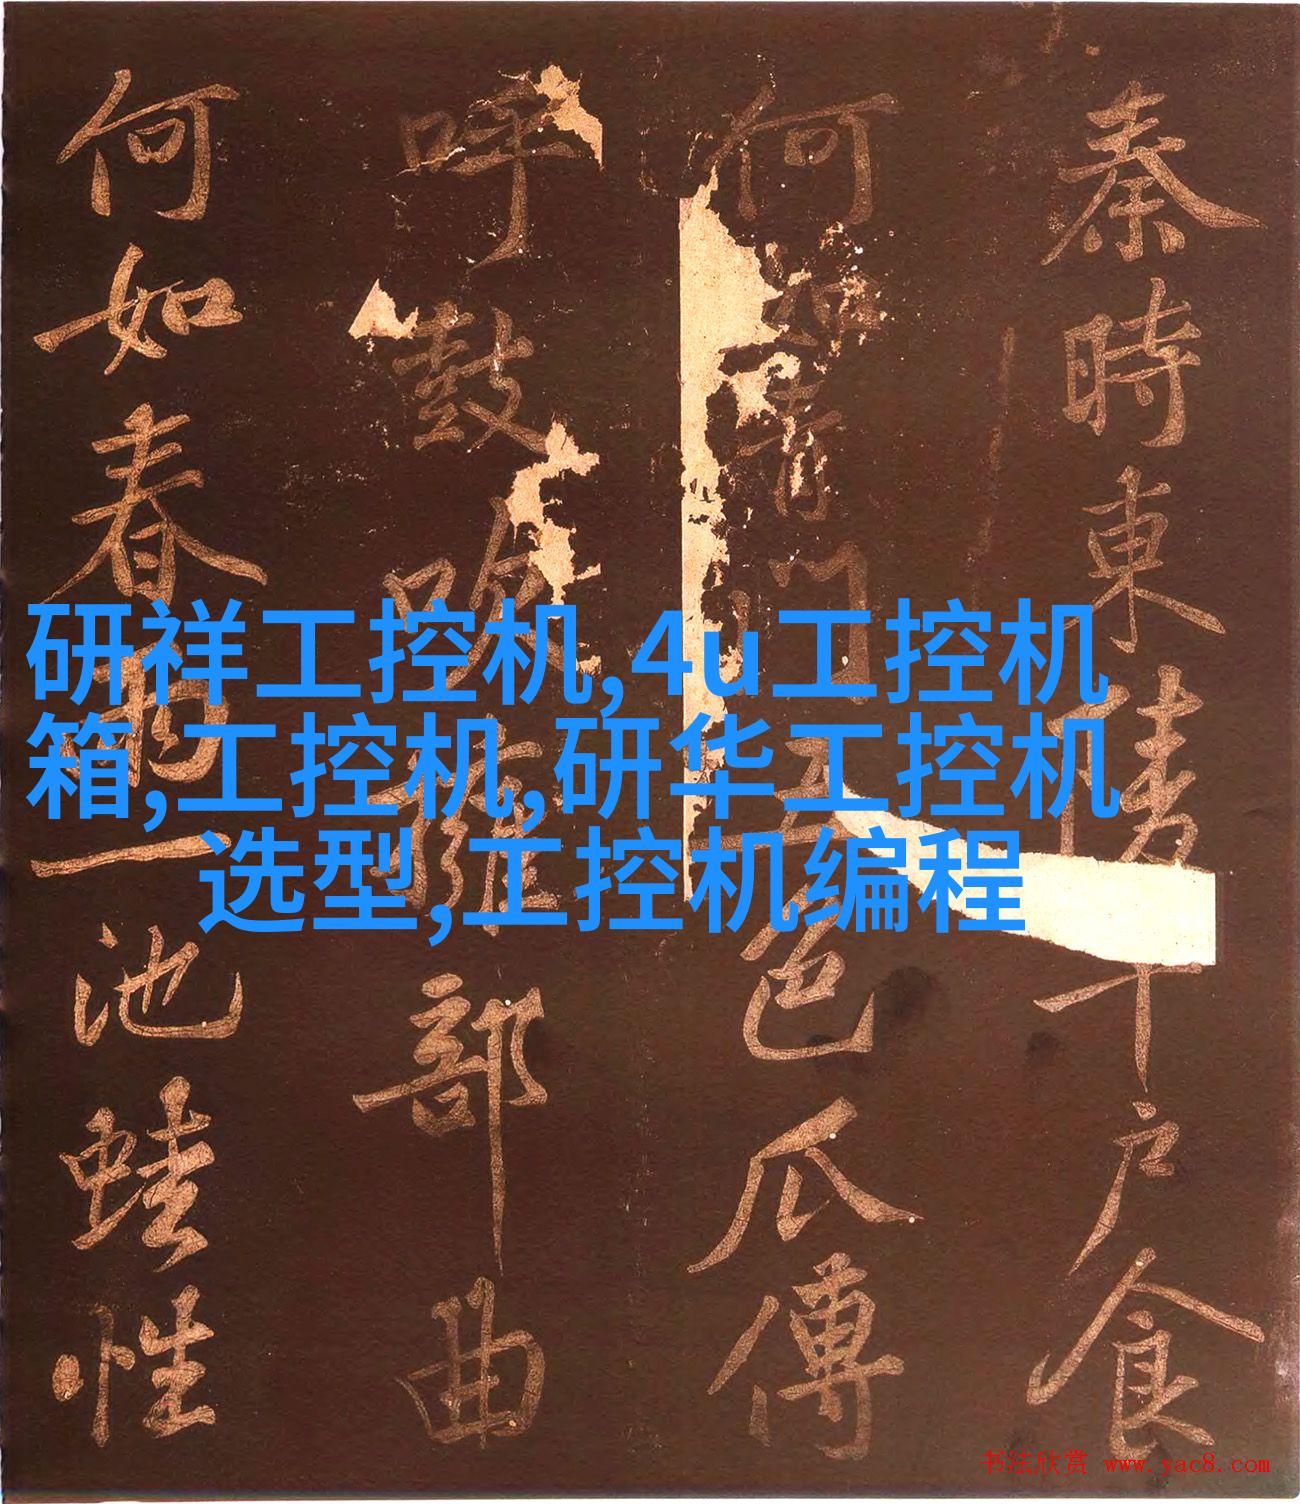 秦時東陵千户食
何如青門五色瓜傅
呼鼓吹離部曲
何如春雨一池蛙性
研祥工控机,4u工控机
箱,工控机,研华工控机
选型,工控机编程
书法欣赏 www.yac8.com